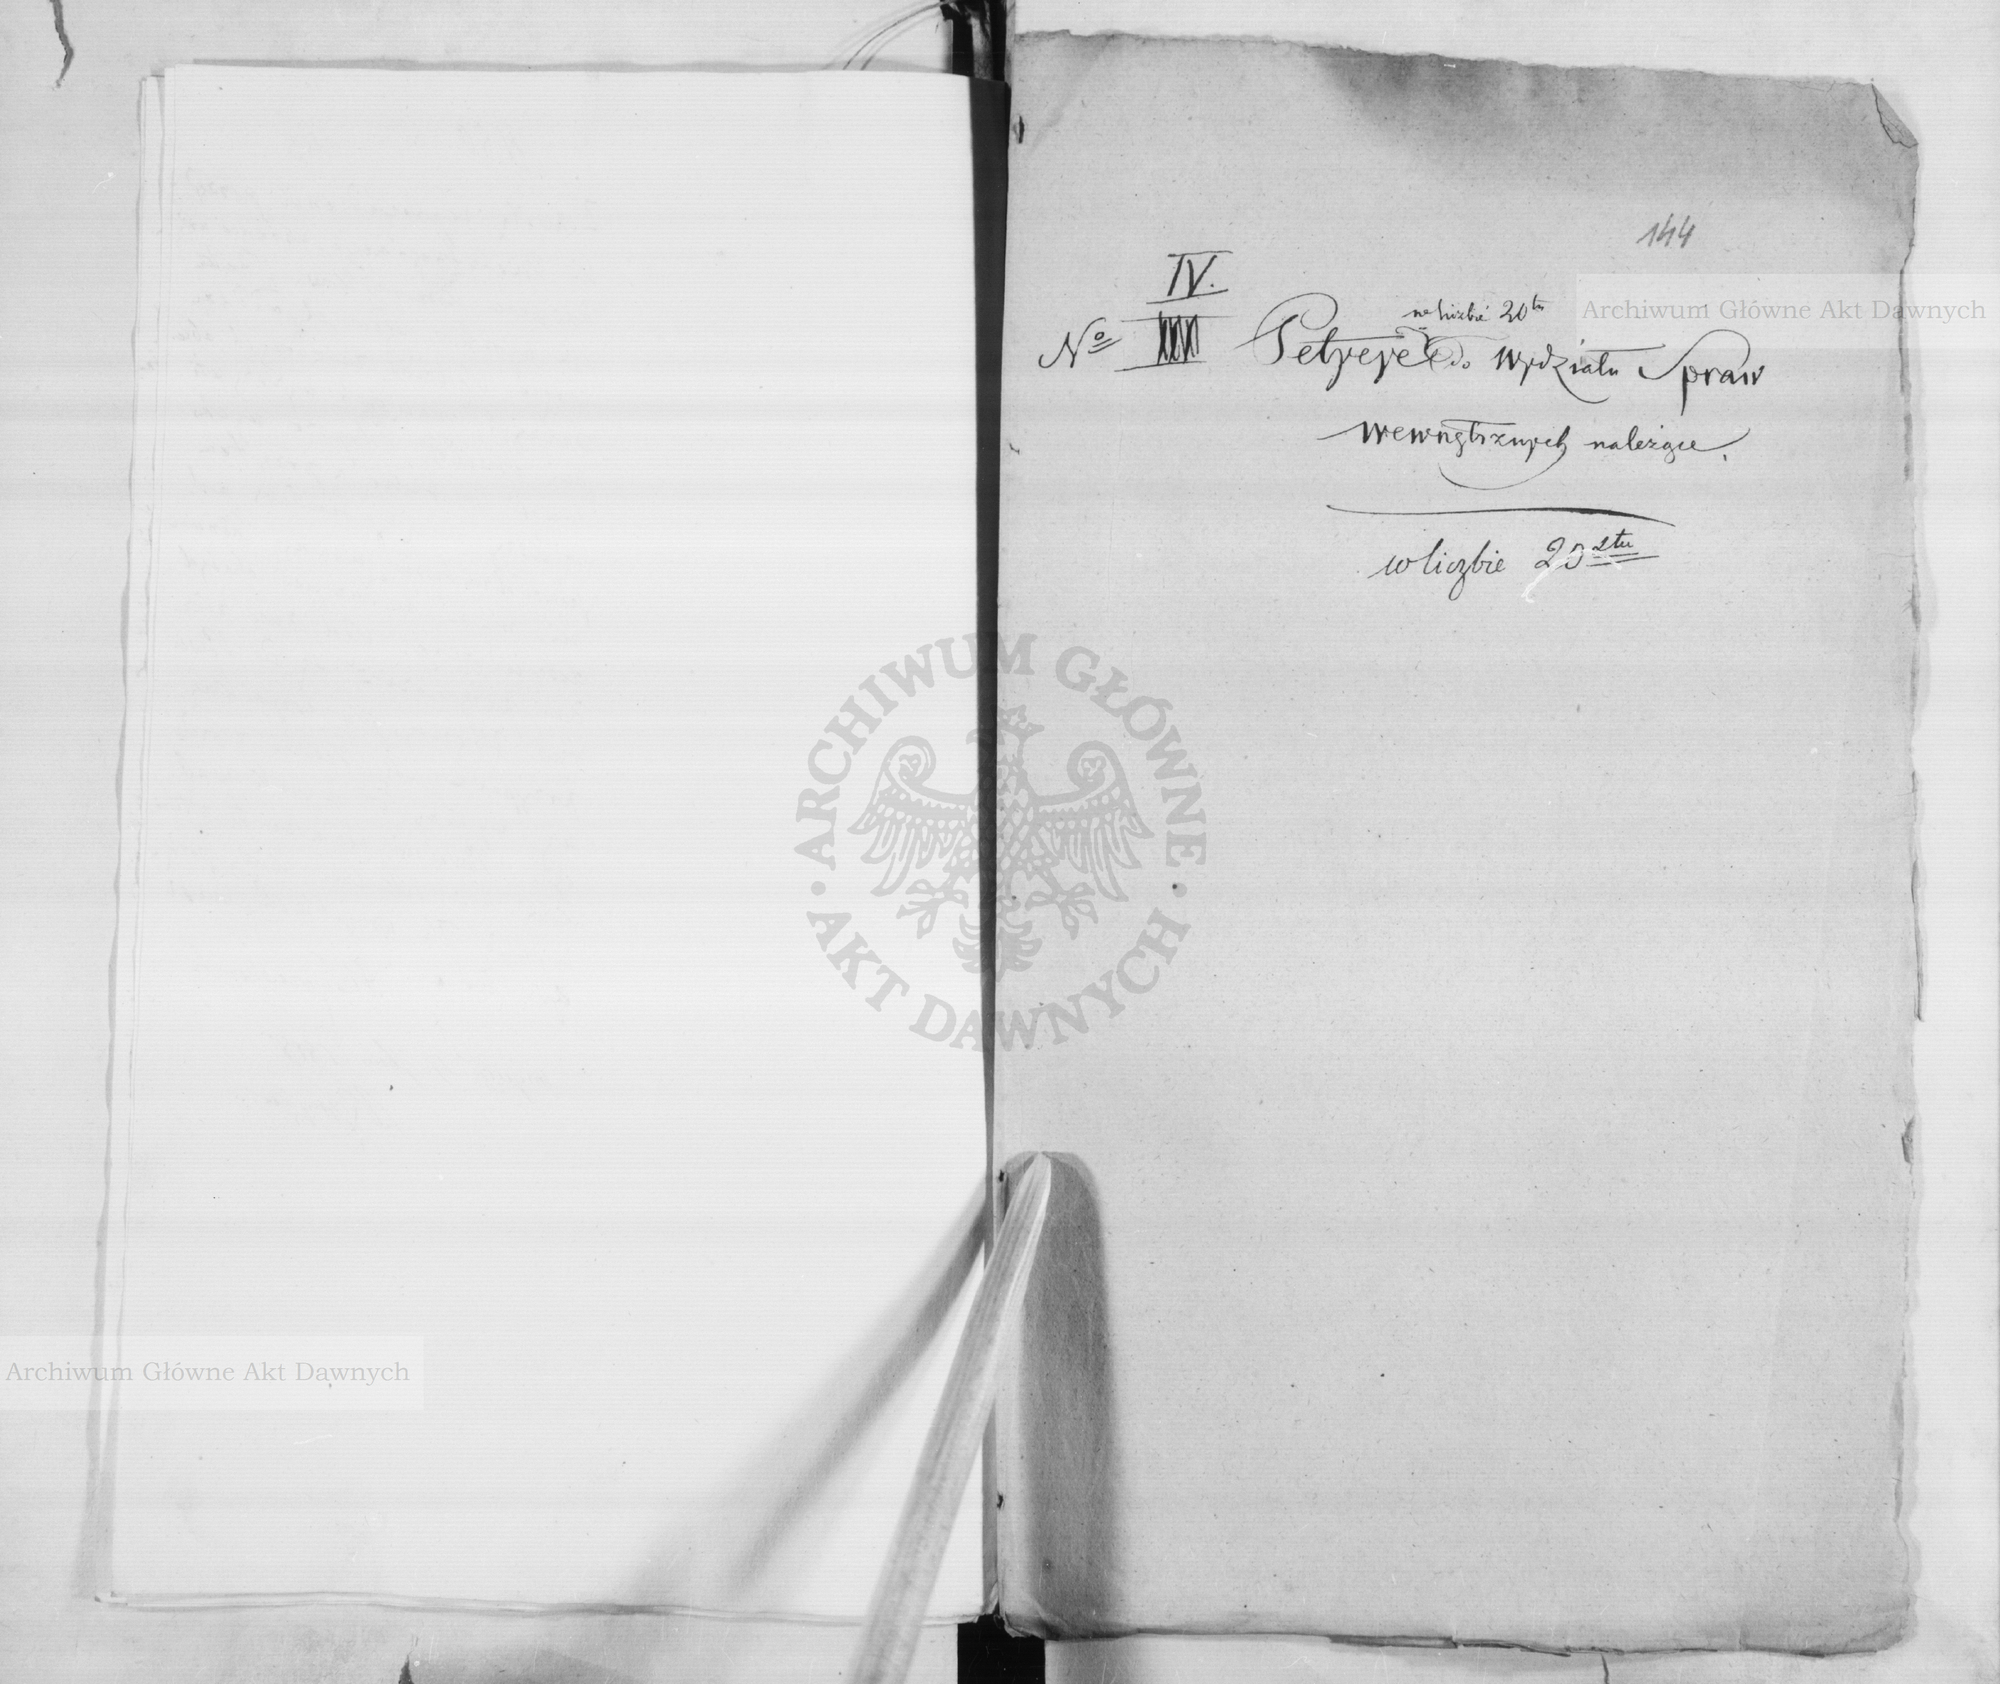 144
IV.
w liczbie 20tu
No XXVI Petycye do Wydziału Spraw
wewnętrznych należące.
w liczbie 20stu
Archiwum Główne Akt Dawnych
ARCHIWUM GŁÓWNE AKT DAWNYCH
Archiwum Główne Akt Dawnych